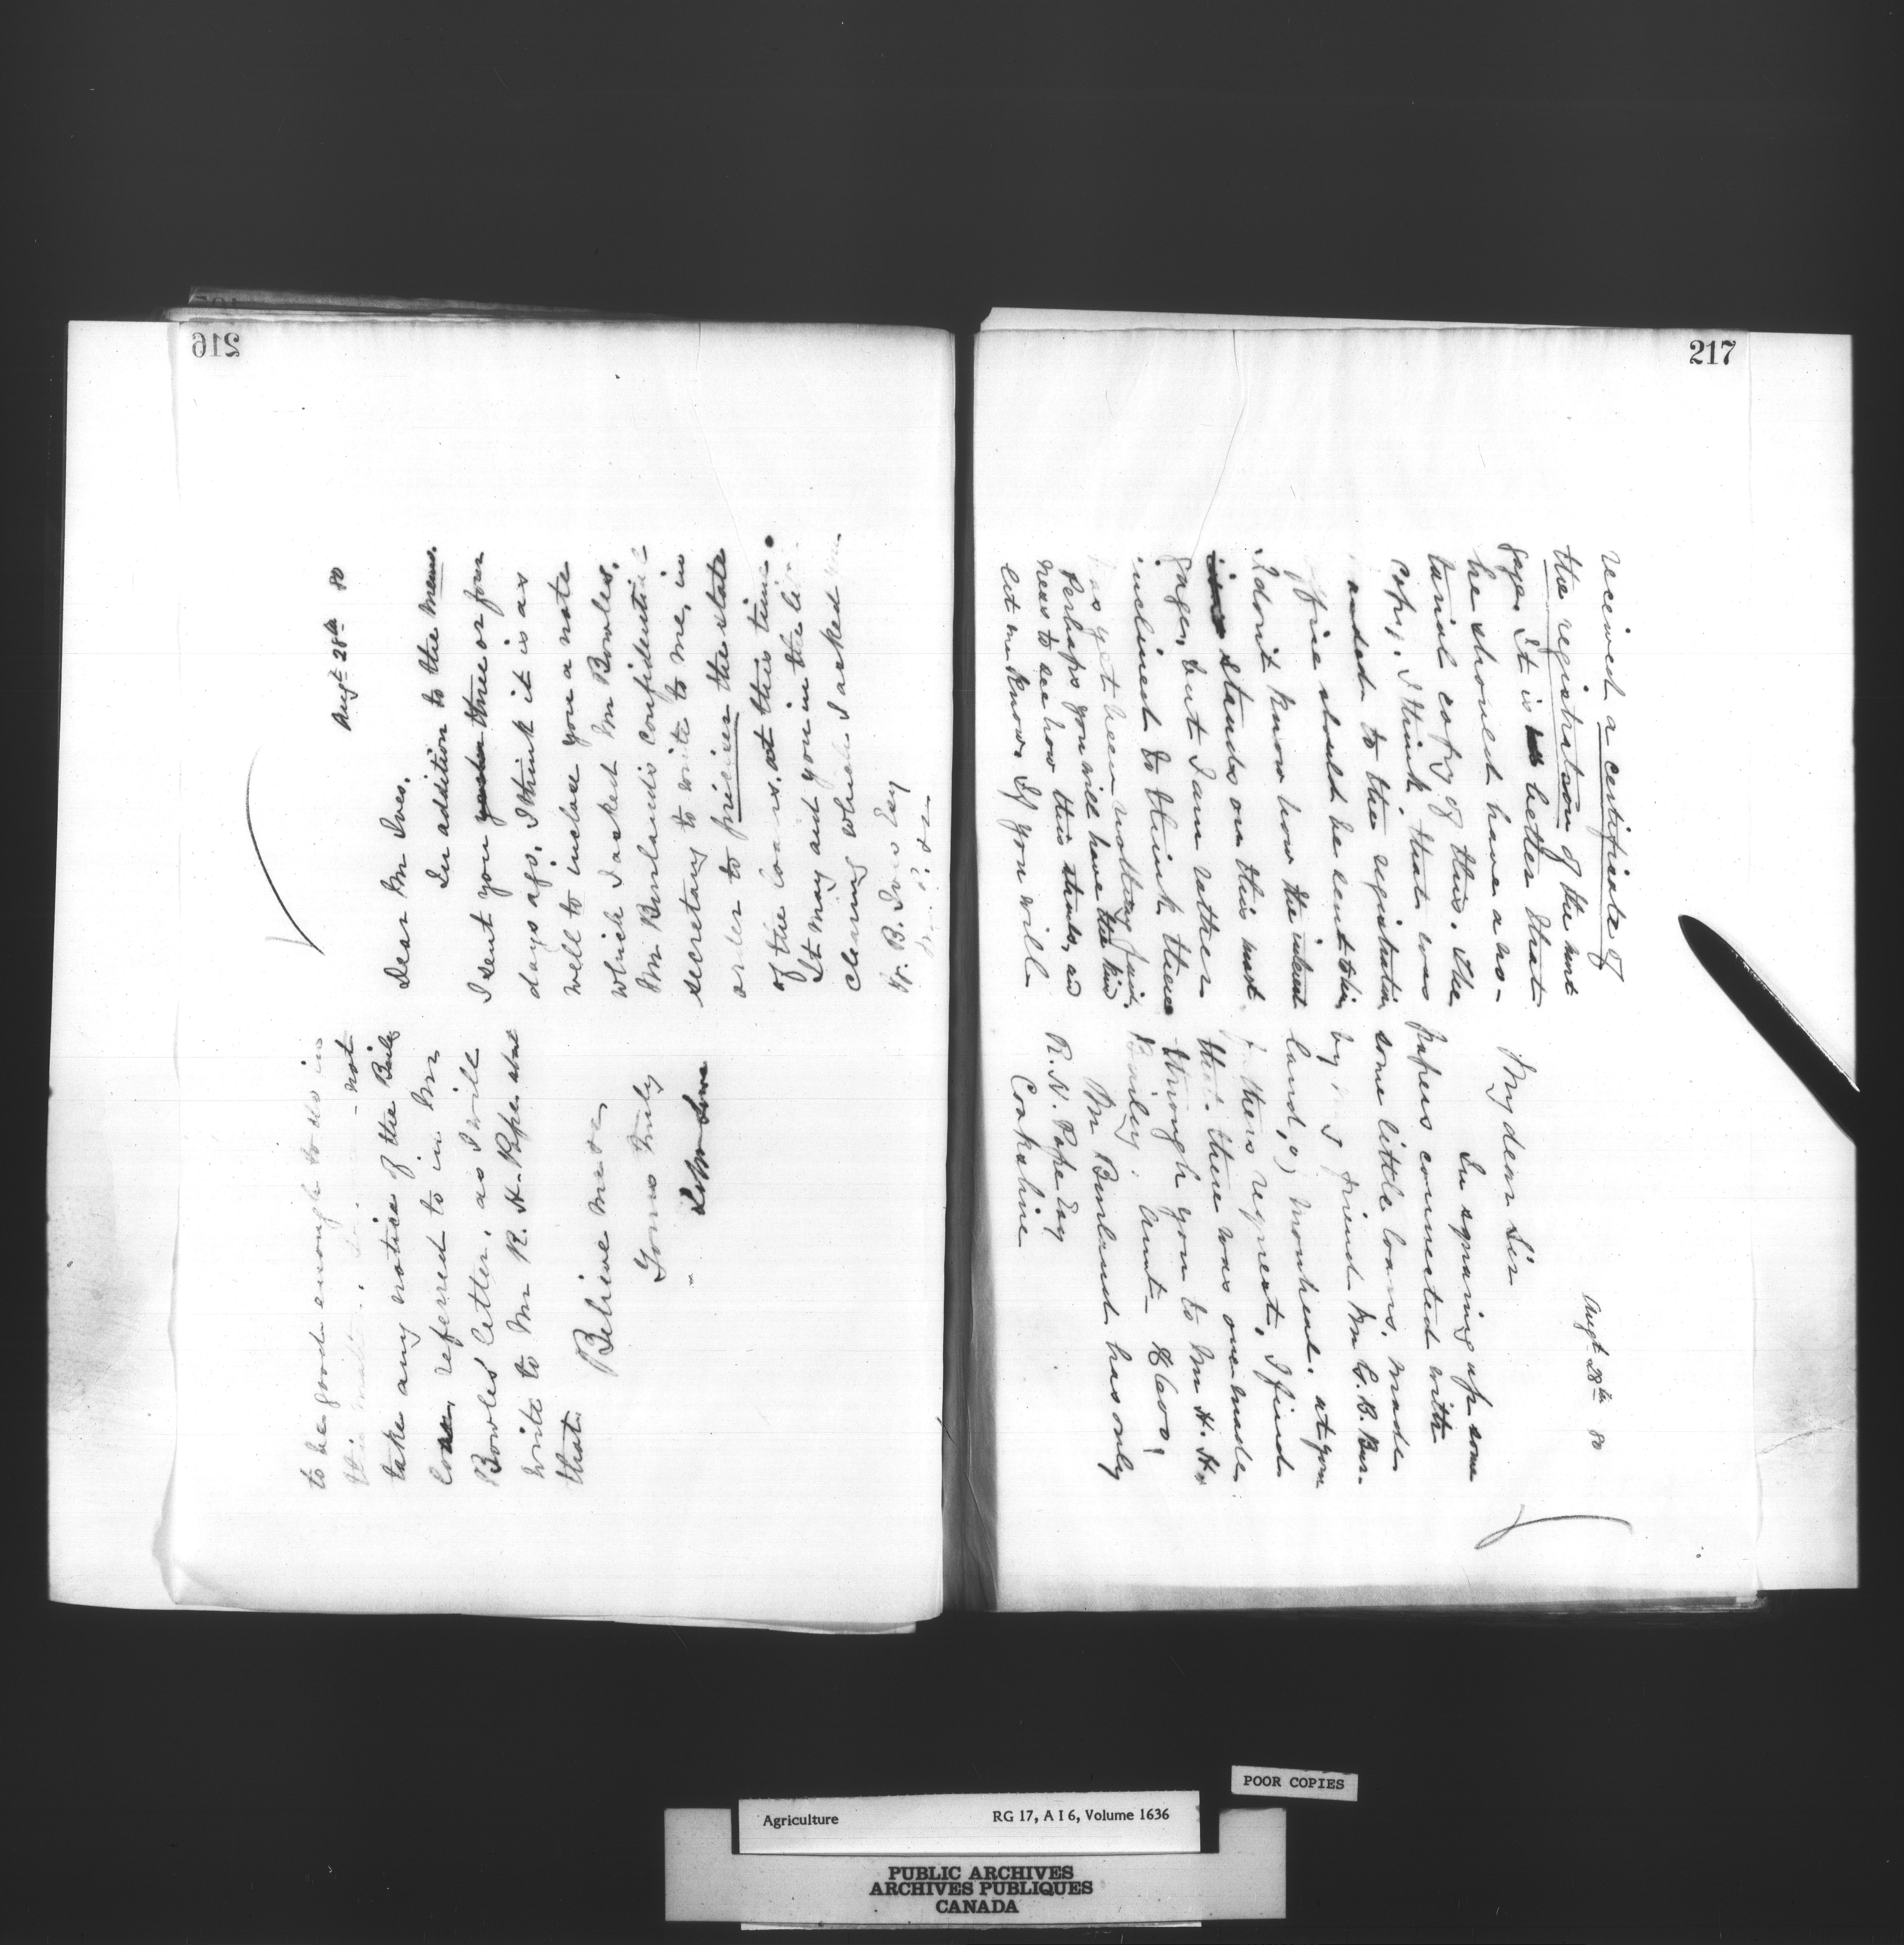 216
Augt 28th 80
Dear Mr Ives.
In addition to the Memo.
I sent you three or four
days ago, I think it is as
well to inclose you a note
which I asked Mr Bowles,
Mr Burland's confidential
secretary to write to me, in
order to precise the state
of the loans at this time.
It may aid you in the
clearing which I asked you
W. B. Ives Esq
to be good enough to do in
not
take any notice of the Baily
loan, referred to in Mr
Bowles' letter, as I will
write to Mr R. H. Pope about
that.
Believe me
Yours truly
217
Augt 28th 80
My dear Sir
In squaring up some
papers connected with
some little loans, made
by my friend Mr G. B. Bur-
land, of Montreal, at your
fathers request, I find
that there was one made
through you to Mr H. H.
Baily: Amt $600,
Mr Burland has only
R. N. Pope Esq
Cookshire
received a certificate of
the registration of the mort
gage. It is better that
he should have a no-
tarial copy of this. The
copy, I think, that was
handed to the registration
office should be sent to him
I don't know how the interest
stands on this mort
gage, but I am rather
inclined to think there
has yet been nothing paid.
Perhaps you will have the kind
ness to see how this stands, and
let me know. If you will
Agriculture RG 17, A I 6, Volume 1636
POOR COPIES
PUBLIC ARCHIVES
ARCHIVES PUBLIQUES
CANADA